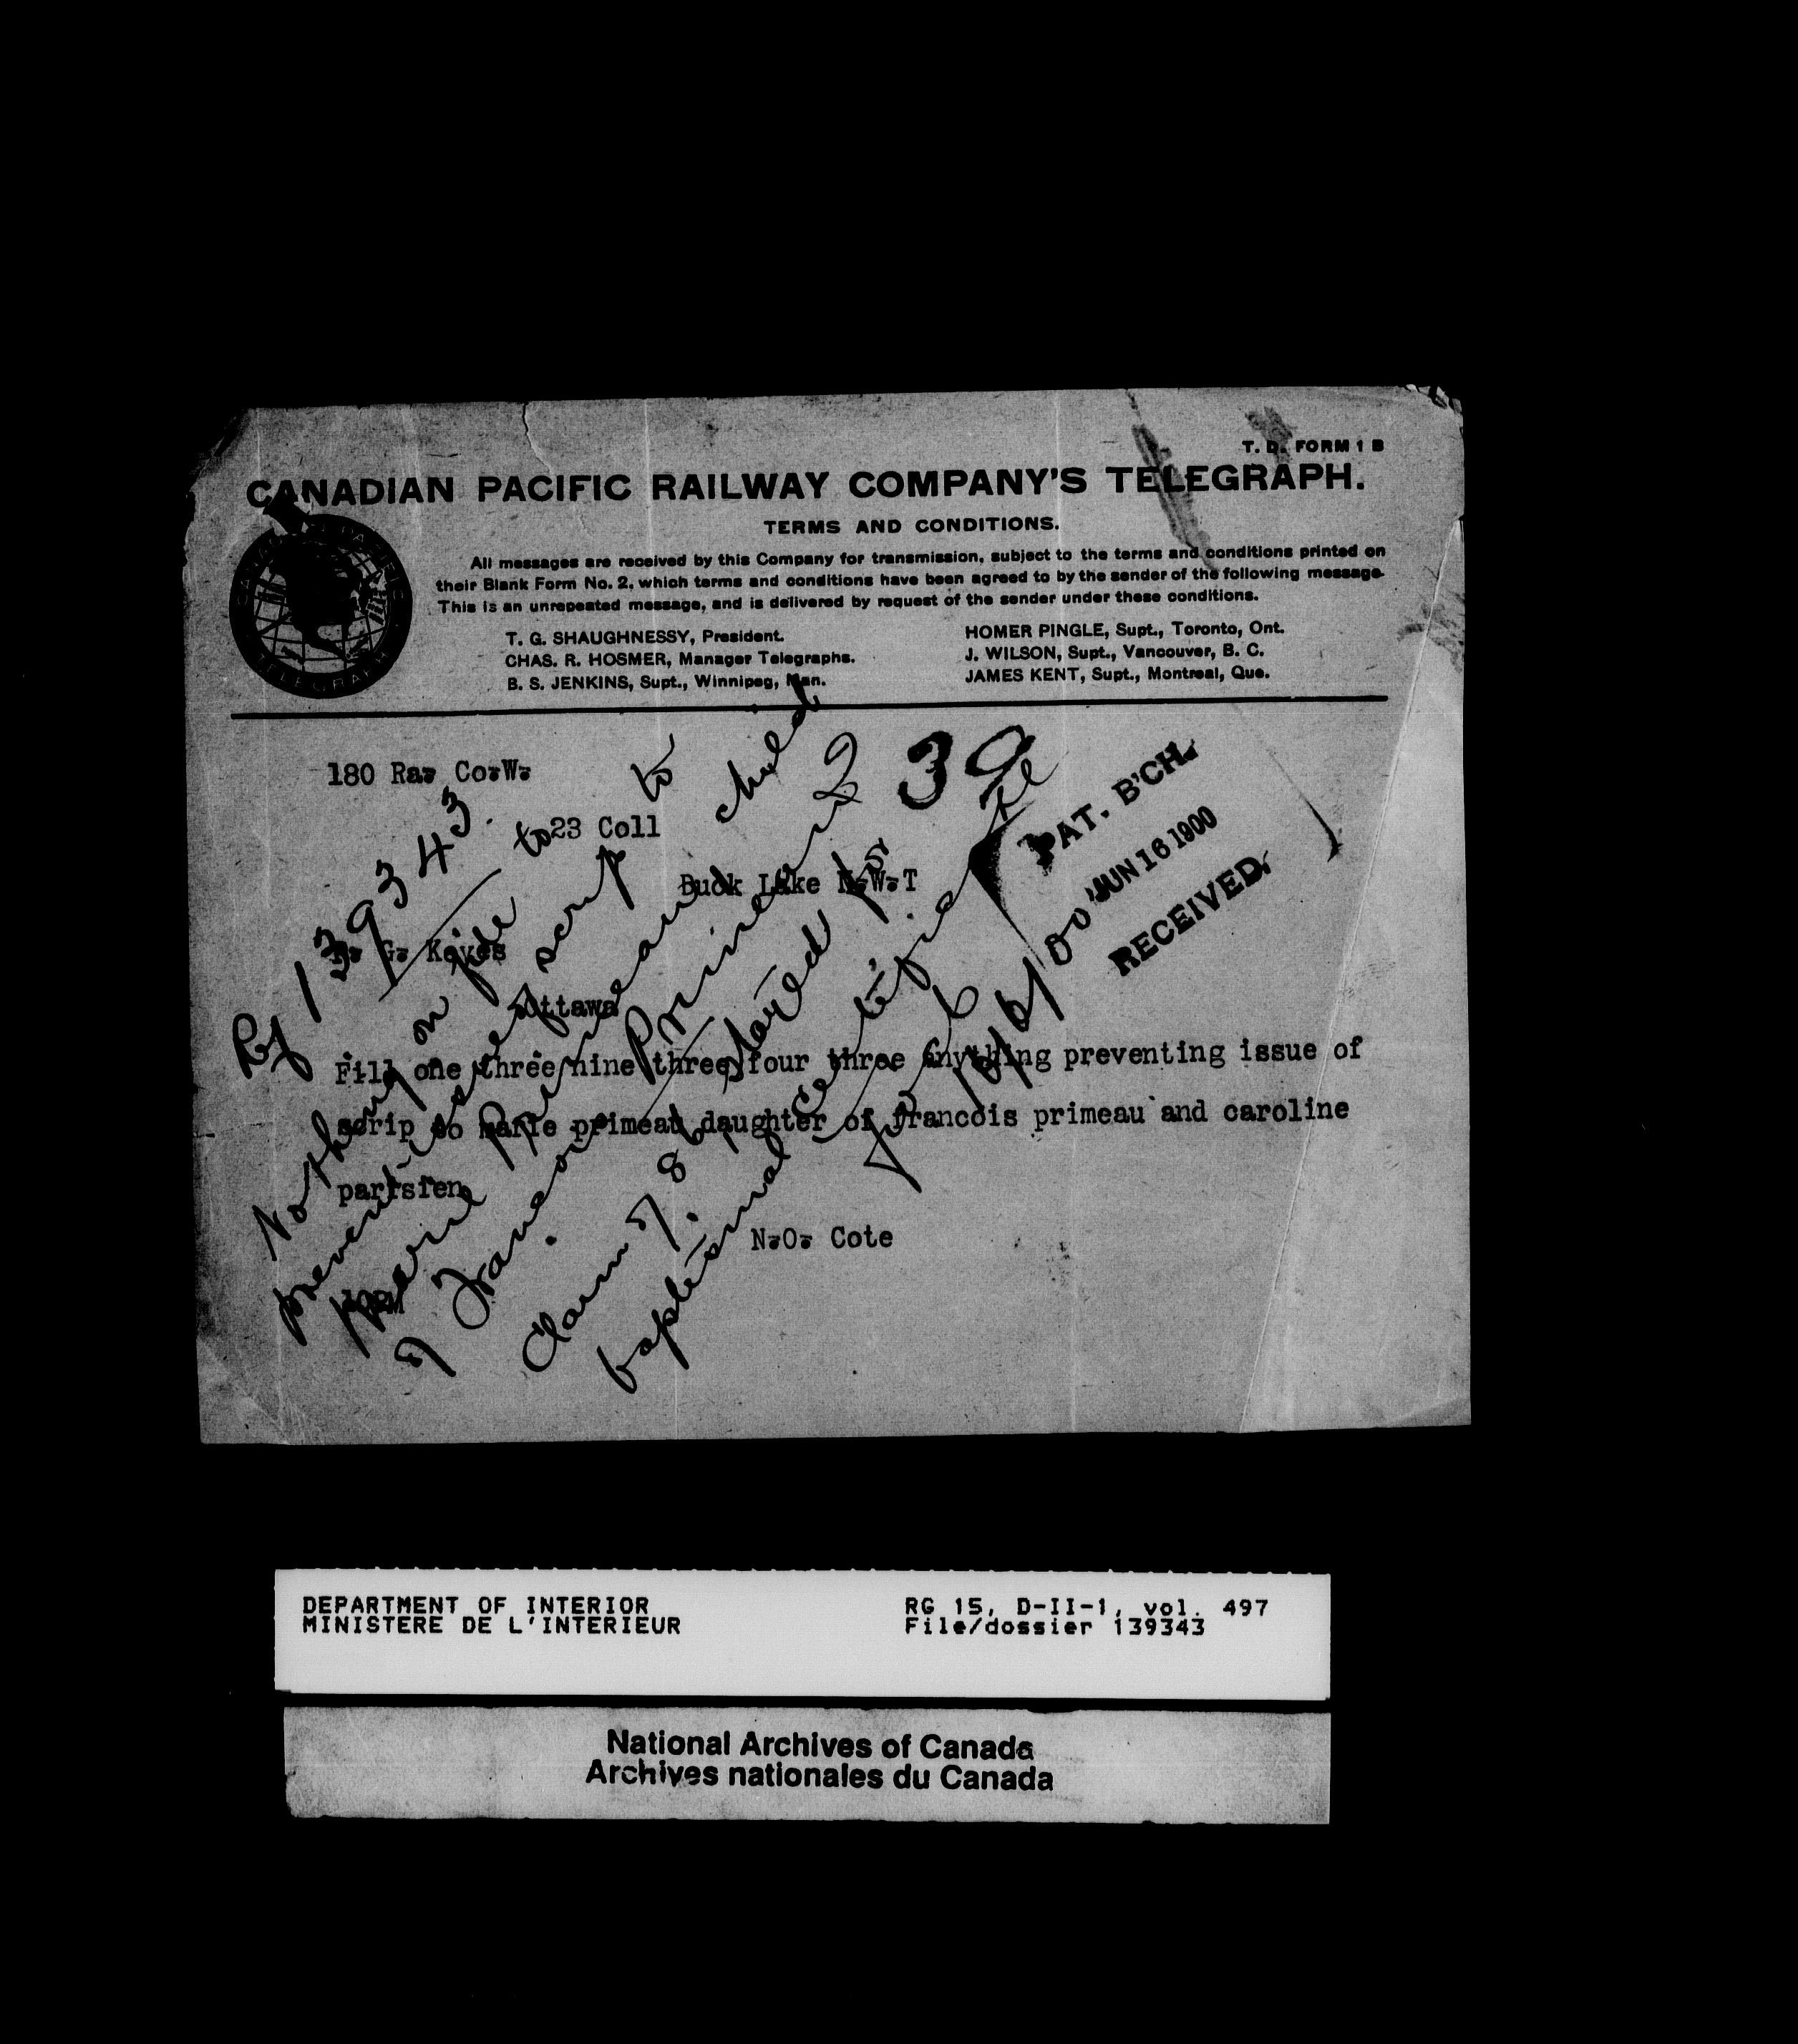 T. D. FORM 1 B
CANADIAN PACIFIC RAILWAY COMPANY'S TELEGRAPH.
TERMS AND CONDITIONS.
All messages are received by this Company for transmission, subject to the terms and conditions printed on
their Blank Form No. 2, which terms and conditions have been agreed to by the sender of the following message.
This is an unrepeated message, and is delivered by request of the sender under these conditions.
T. G. SHAUGHNESSY, President.
CHAS. R. HOSMER, Manager Telegraphs.
B. S. JENKINS, Supt., Winnipeg, Man.
HOMER PINGLE, Supt., Toronto, Ont.
J. WILSON, Supt., Vancouver, B. C.
JAMES KENT, Supt., Montreal, Que.
180 Ra. Co.W.
23 Coll
Duck Lake N.W.T
39
PAT. B'CH.
JUN 16 1900
RECEIVED.
G. Keyes
Ottawa
File one three nine three four three anything preventing issue of
scrip to marie primeau daughter of francois primeau and caroline
parisien
N.O. Cote
10PM
Rf 139343.
Nothing on file to
prevent issue of scrip to
Marie Primeau child
of Francois Primeau
Claim of stated for
baptismal certificate
16/6/00
DEPARTMENT OF INTERIOR
MINISTERE DE L'INTERIEUR
RG 15, D-II-1, vol. 497
File/dossier 139343
National Archives of Canada
Archives nationales du Canada